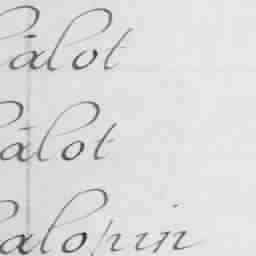 âlot
âlot
alopin